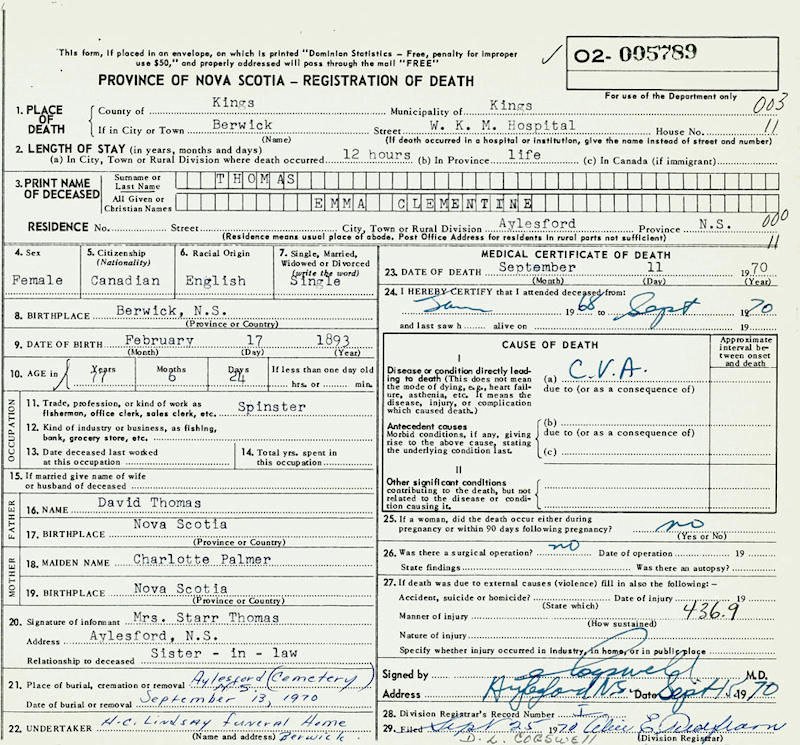 This form, if placed in an envelope, on which is printed "Dominion Statistics – Free, penalty for improper
use $50," and properly addressed will pass through the mail "FREE"
✓ 02- 005789
PROVINCE OF NOVA SCOTIA – REGISTRATION OF DEATH
For use of the Department only
003
1. PLACE OF DEATH County of Kings Municipality of Kings
If in City or Town Berwick Street W. K. M. Hospital House No. 11
(Name) (If death occurred in a hospital or institution, give the name instead of street and number)
2. LENGTH OF STAY (in years, months and days)
(a) In City, Town or Rural Division where death occurred 12 hours (b) In Province life (c) In Canada (if immigrant)
3. PRINT NAME OF DECEASED Surname or Last Name THOMAS
All Given or Christian Names EMMA CLEMENTINE
RESIDENCE No. Street City, Town or Rural Division Aylesford Province N.S. 000
(Residence means usual place of abode. Post Office Address for residents in rural parts not sufficient) 11
4. Sex Female
5. Citizenship (Nationality) Canadian
6. Racial Origin English
7. Single, Married, Widowed or Divorced (write the word) Single
8. BIRTHPLACE Berwick, N.S.
(Province or Country)
9. DATE OF BIRTH February 17 1893
(Month) (Day) (Year)
10. AGE in Years 77 Months 6 Days 24 If less than one day old
hrs. or min.
OCCUPATION
11. Trade, profession, or kind of work as fisherman, office clerk, sales clerk, etc. Spinster
12. Kind of industry or business, as fishing, bank, grocery store, etc.
13. Date deceased last worked at this occupation
14. Total yrs. spent in this occupation
15. If married give name of wife or husband of deceased
FATHER
16. NAME David Thomas
17. BIRTHPLACE Nova Scotia
(Province or Country)
MOTHER
18. MAIDEN NAME Charlotte Palmer
19. BIRTHPLACE Nova Scotia
(Province or Country)
20. Signature of informant Mrs. Starr Thomas
Address Aylesford, N.S.
Relationship to deceased Sister - in - law
21. Place of burial, cremation or removal Aylesford (Cemetery) N.S.
Date of burial or removal September 13, 1970
22. UNDERTAKER H.C. Lindsay Funeral Home
(Name and address) Berwick.
MEDICAL CERTIFICATE OF DEATH
23. DATE OF DEATH September 11 1970
(Month) (Day) (Year)
24. I HEREBY CERTIFY that I attended deceased from:
Jan 1968 to Sept 1970
and last saw h alive on 19
CAUSE OF DEATH
Approximate interval between onset and death
I
Disease or condition directly leading to death (This does not mean the mode of dying, e.g., heart failure, asthenia, etc. It means the disease, injury, or complication which caused death.)
(a) C.V.A.
due to (or as a consequence of)
Antecedent causes
Morbid conditions, if any, giving rise to the above cause, stating the underlying condition last.
(b)
due to (or as a consequence of)
(c)
II
Other significant conditions
contributing to the death, but not related to the disease or condition causing it.
25. If a woman, did the death occur either during pregnancy or within 90 days following pregnancy? no
(Yes or No)
26. Was there a surgical operation? no Date of operation 19
State findings Was there an autopsy?
27. If death was due to external causes (violence) fill in also the following: –
Accident, suicide or homicide? Date of injury 19
(State which)
Manner of injury 436.9
(How sustained)
Nature of injury
Specify whether injury occurred in industry, in home, or in public place
Signed by M.D.
Address Aylesford N.S. Date Sept 1970
28. Division Registrar's Record Number
29. Filed Sept 25 1970
(Division Registrar)
D. L. COGSWELL